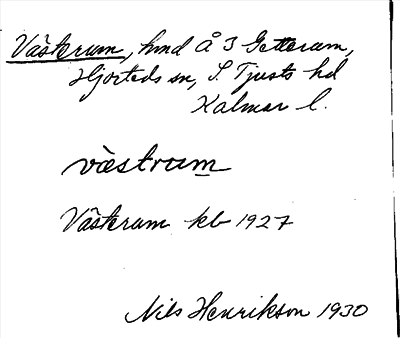 Västerum, hmd å 3 Getterum,
Hjorteds sn, S. Tjusts hd
Kalmar l.
västrum
Västerum kb 1927
Nils Henrikson 1930